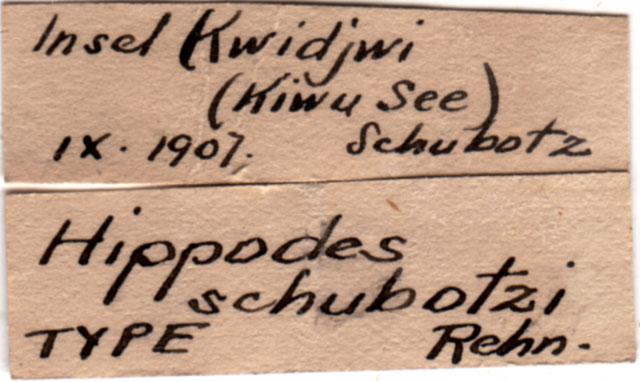 Insel Kwidjwi
(Kiwu See)
IX. 1907. Schubotz
Hippodes
schubotzi
TYPE Rehn.